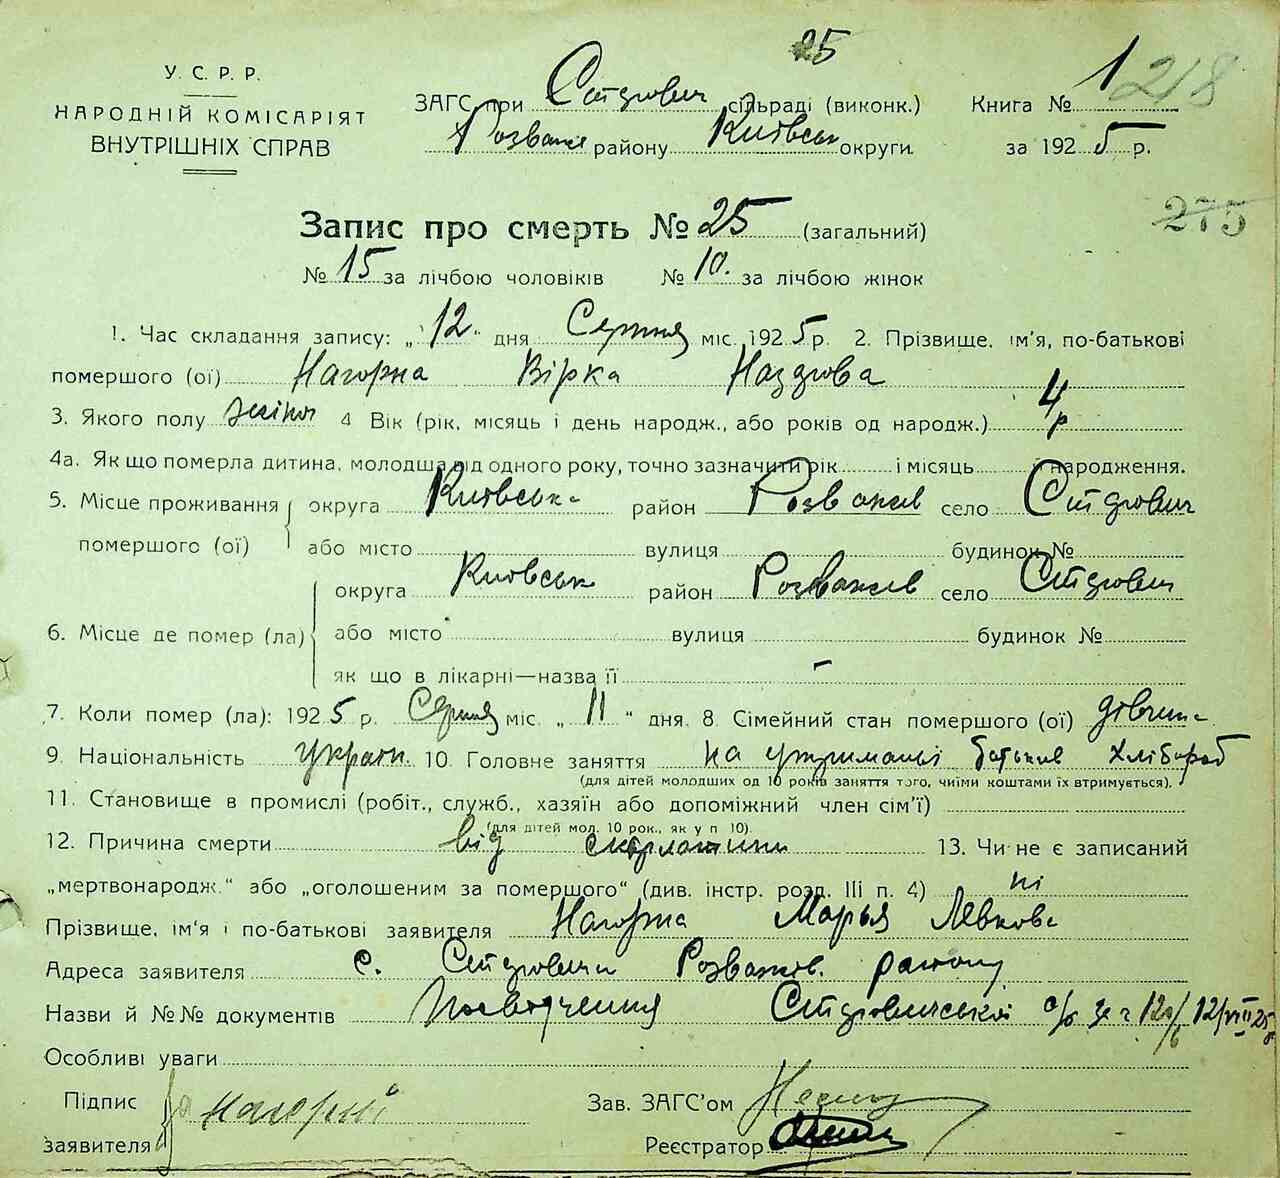 25
У. С. Р. Р.
НАРОДНІЙ КОМІСАРІЯТ
ВНУТРІШНІХ СПРАВ
ЗАГС при сільраді (виконк.)
Розваж району Київськ округи
Книга № 1 218
за 1925 р.
275
Запис про смерть № 25 (загальний)
№ 15 за лічбою чоловіків № 10. за лічбою жінок
1. Час складання запису: „12" дня Серпня міс. 1925 р. 2. Прізвище, ім'я, по-батькові
помершого (ої) Нагорна Вірка
3. Якого полу жіноч 4 Вік (рік, місяць і день народж., або років од народж.) 4 р
4а. Як що померла дитина, молодша від одного року, точно зазначити рік і місяць народження.
5. Місце проживання помершого (ої) округа Київська район Розважів село
або місто вулиця будинок №
6. Місце де помер (ла) округа Київськ район Розважів село
або місто вулиця будинок №
як що в лікарні—назва її –
7. Коли помер (ла): 1925 р. Серпня міс. „11" дня. 8. Сімейний стан помершого (ої) дівчина
9. Національність україн. 10. Головне заняття на утриманьі батька хлібороб
(для дітей молодших од 10 років заняття того, чиїми коштами їх втримується).
11. Становище в промислі (робіт., служб., хазяїн або допоміжний член сім'ї)
(для дітей мол. 10 рок., як у п 10).
12. Причина смерти від скарлатини 13. Чи не є записаний
„мертвонародж." або „оголошеним за помершого" (див. інстр. розд. III п. 4) ні
Прізвище, ім'я і по-батькові заявителя Нагорна Марья Левкова
Адреса заявителя с. Розважів. району
Назви й №№ документів Посвідчення с/р за ч 12/VIII 25
Особливі уваги
Підпис заявителя За Нагорний
Зав. ЗАГС'ом
Реєстратор